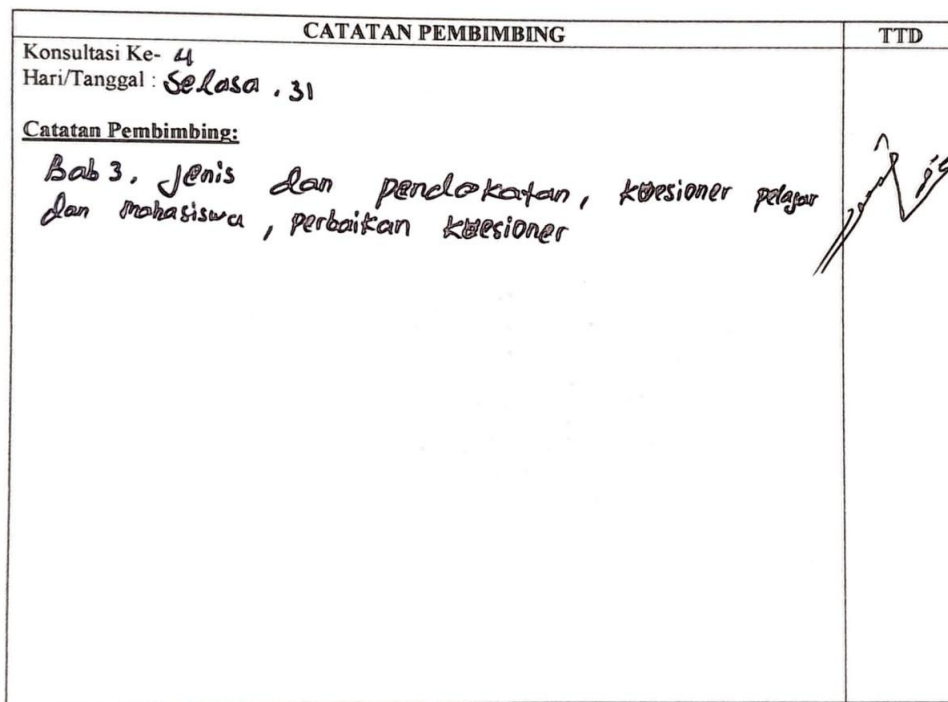 CATATAN PEMBIMBING TTD
Konsultasi Ke- 4
Hari/Tanggal : Selasa . 31
Catatan Pembimbing:
Bab 3. Jenis dan pendekatan, kuesioner pelajar
dan mahasiswa, perbaikan kuesioner